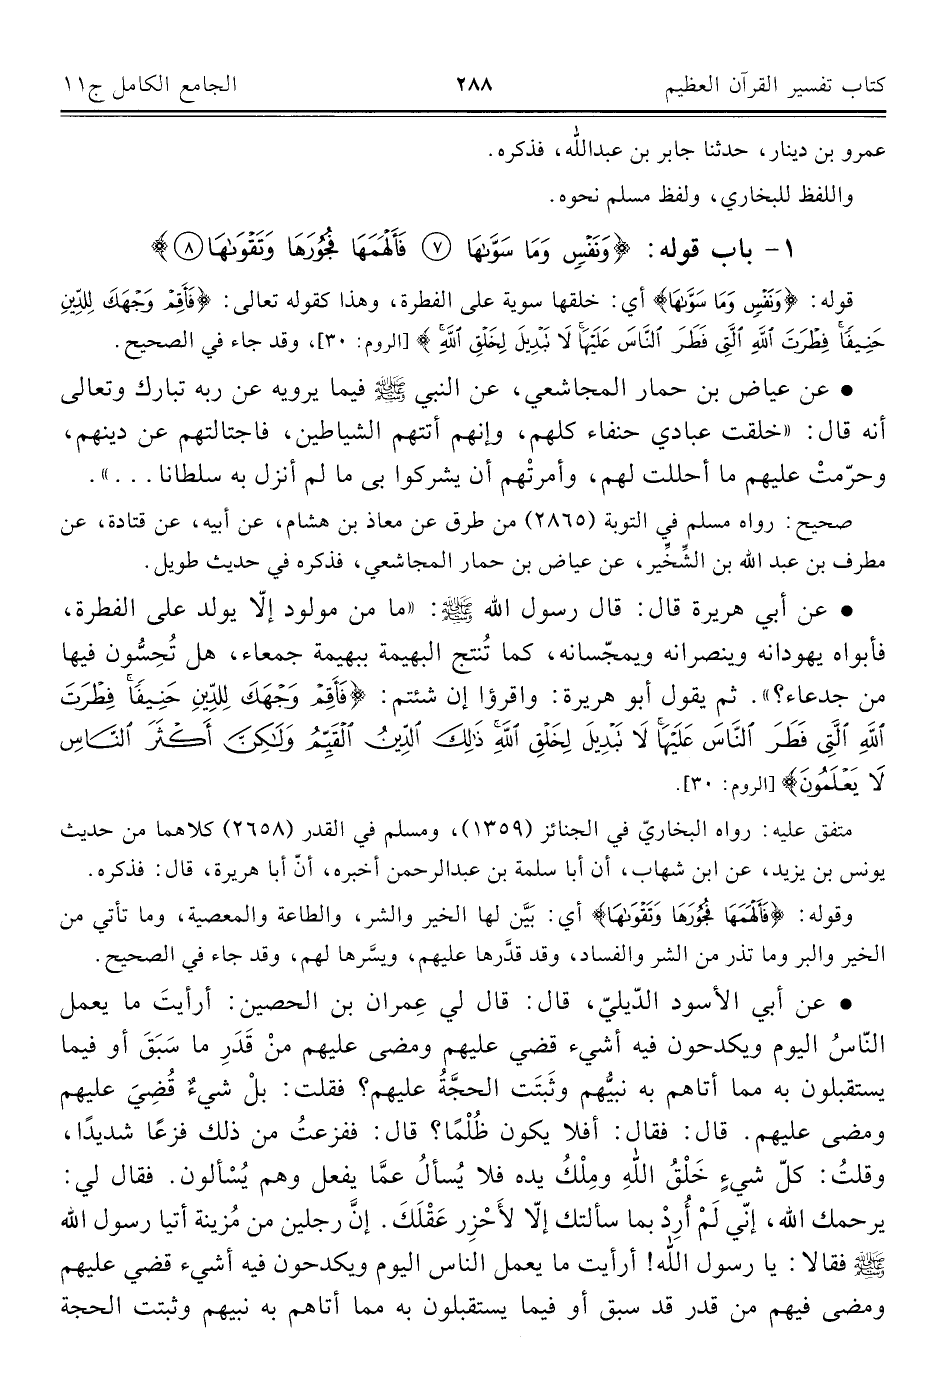 كتاب تفسير القرآن العظيم ٢٨٨ الجامع الكامل ج١١
عمرو بن دينار، حدثنا جابر بن عبدالله، فذكره.
واللفظ للبخاري، ولفظ مسلم نحوه.
١- باب قوله: ﴿وَنَفْسٍ وَمَا سَوَّىٰهَا ٧ فَأَلْهَمَهَا فُجُورَهَا وَتَقْوَىٰهَا ٨﴾
قوله: ﴿وَنَفْسٍ وَمَا سَوَّىٰهَا﴾ أي: خلقها سوية على الفطرة، وهذا كقوله تعالى: ﴿فَأَقِمْ وَجْهَكَ لِلدِّينِ
حَنِيفًا ۚ فِطْرَتَ ٱللَّهِ ٱلَّتِي فَطَرَ ٱلنَّاسَ عَلَيْهَا ۚ لَا تَبْدِيلَ لِخَلْقِ ٱللَّهِ ۚ ﴾ [الروم: ٣٠]، وقد جاء في الصحيح.
• عن عياض بن حمار المجاشعي، عن النبي ﷺ فيما يرويه عن ربه تبارك وتعالى
أنه قال: «خلقت عبادي حنفاء كلهم، وإنهم أتتهم الشياطين، فاجتالتهم عن دينهم،
وحرّمتْ عليهم ما أحللت لهم، وأمرتْهم أن يشركوا بي ما لم أنزل به سلطانا . . .».
صحيح: رواه مسلم في التوبة (٢٨٦٥) من طرق عن معاذ بن هشام، عن أبيه، عن قتادة، عن
مطرف بن عبد الله بن الشِّخِّير، عن عياض بن حمار المجاشعي، فذكره في حديث طويل.
• عن أبي هريرة قال: قال رسول الله ﷺ: «ما من مولود إلّا يولد على الفطرة،
فأبواه يهودانه وينصرانه ويمجّسانه، كما تُنتج البهيمة بهيمة جمعاء، هل تُحِسُّون فيها
من جدعاء؟». ثم يقول أبو هريرة: واقرؤا إن شئتم: ﴿فَأَقِمْ وَجْهَكَ لِلدِّينِ حَنِيفًا ۚ فِطْرَتَ
ٱللَّهِ ٱلَّتِي فَطَرَ ٱلنَّاسَ عَلَيْهَا ۚ لَا تَبْدِيلَ لِخَلْقِ ٱللَّهِ ۚ ذَٰلِكَ ٱلدِّينُ ٱلْقَيِّمُ وَلَٰكِنَّ أَكْثَرَ ٱلنَّاسِ
لَا يَعْلَمُونَ﴾ [الروم: ٣٠].
متفق عليه: رواه البخاريّ في الجنائز (١٣٥٩)، ومسلم في القدر (٢٦٥٨) كلاهما من حديث
يونس بن يزيد، عن ابن شهاب، أن أبا سلمة بن عبدالرحمن أخبره، أنّ أبا هريرة، قال: فذكره.
وقوله: ﴿فَأَلْهَمَهَا فُجُورَهَا وَتَقْوَىٰهَا﴾ أي: بَيَّن لها الخير والشر، والطاعة والمعصية، وما تأتي من
الخير والبر وما تذر من الشر والفساد، وقد قدَّرها عليهم، ويسَّرها لهم، وقد جاء في الصحيح.
• عن أبي الأسود الدّيليّ، قال: قال لي عِمران بن الحصين: أرأيتَ ما يعمل
النّاسُ اليوم ويكدحون فيه أشيء قضي عليهم ومضى عليهم منْ قَدَرِ ما سَبَقَ أو فيما
يستقبلون به مما أتاهم به نبيُّهم وثَبَتَت الحجَّةُ عليهم؟ فقلت: بلْ شيءٌ قُضِيَ عليهم
ومضى عليهم. قال: فقال: أفلا يكون ظُلْمًا؟ قال: ففزعتُ من ذلك فزعًا شديدًا،
وقلتُ: كلّ شيءٍ خَلْقُ اللهِ ومِلْكُ يده فلا يُسألُ عمَّا يفعل وهم يُسْألون. فقال لي:
يرحمك الله، إنّي لَمْ أُرِدْ بما سألتك إلّا لأَحْزِر عَقْلَكَ. إنَّ رجلين من مُزينة أتيا رسول الله
ﷺ فقالا: يا رسول الله! أرأيت ما يعمل الناس اليوم ويكدحون فيه أشيء قضي عليهم
ومضى فيهم من قدر قد سبق أو فيما يستقبلون به مما أتاهم به نبيهم وثبتت الحجة